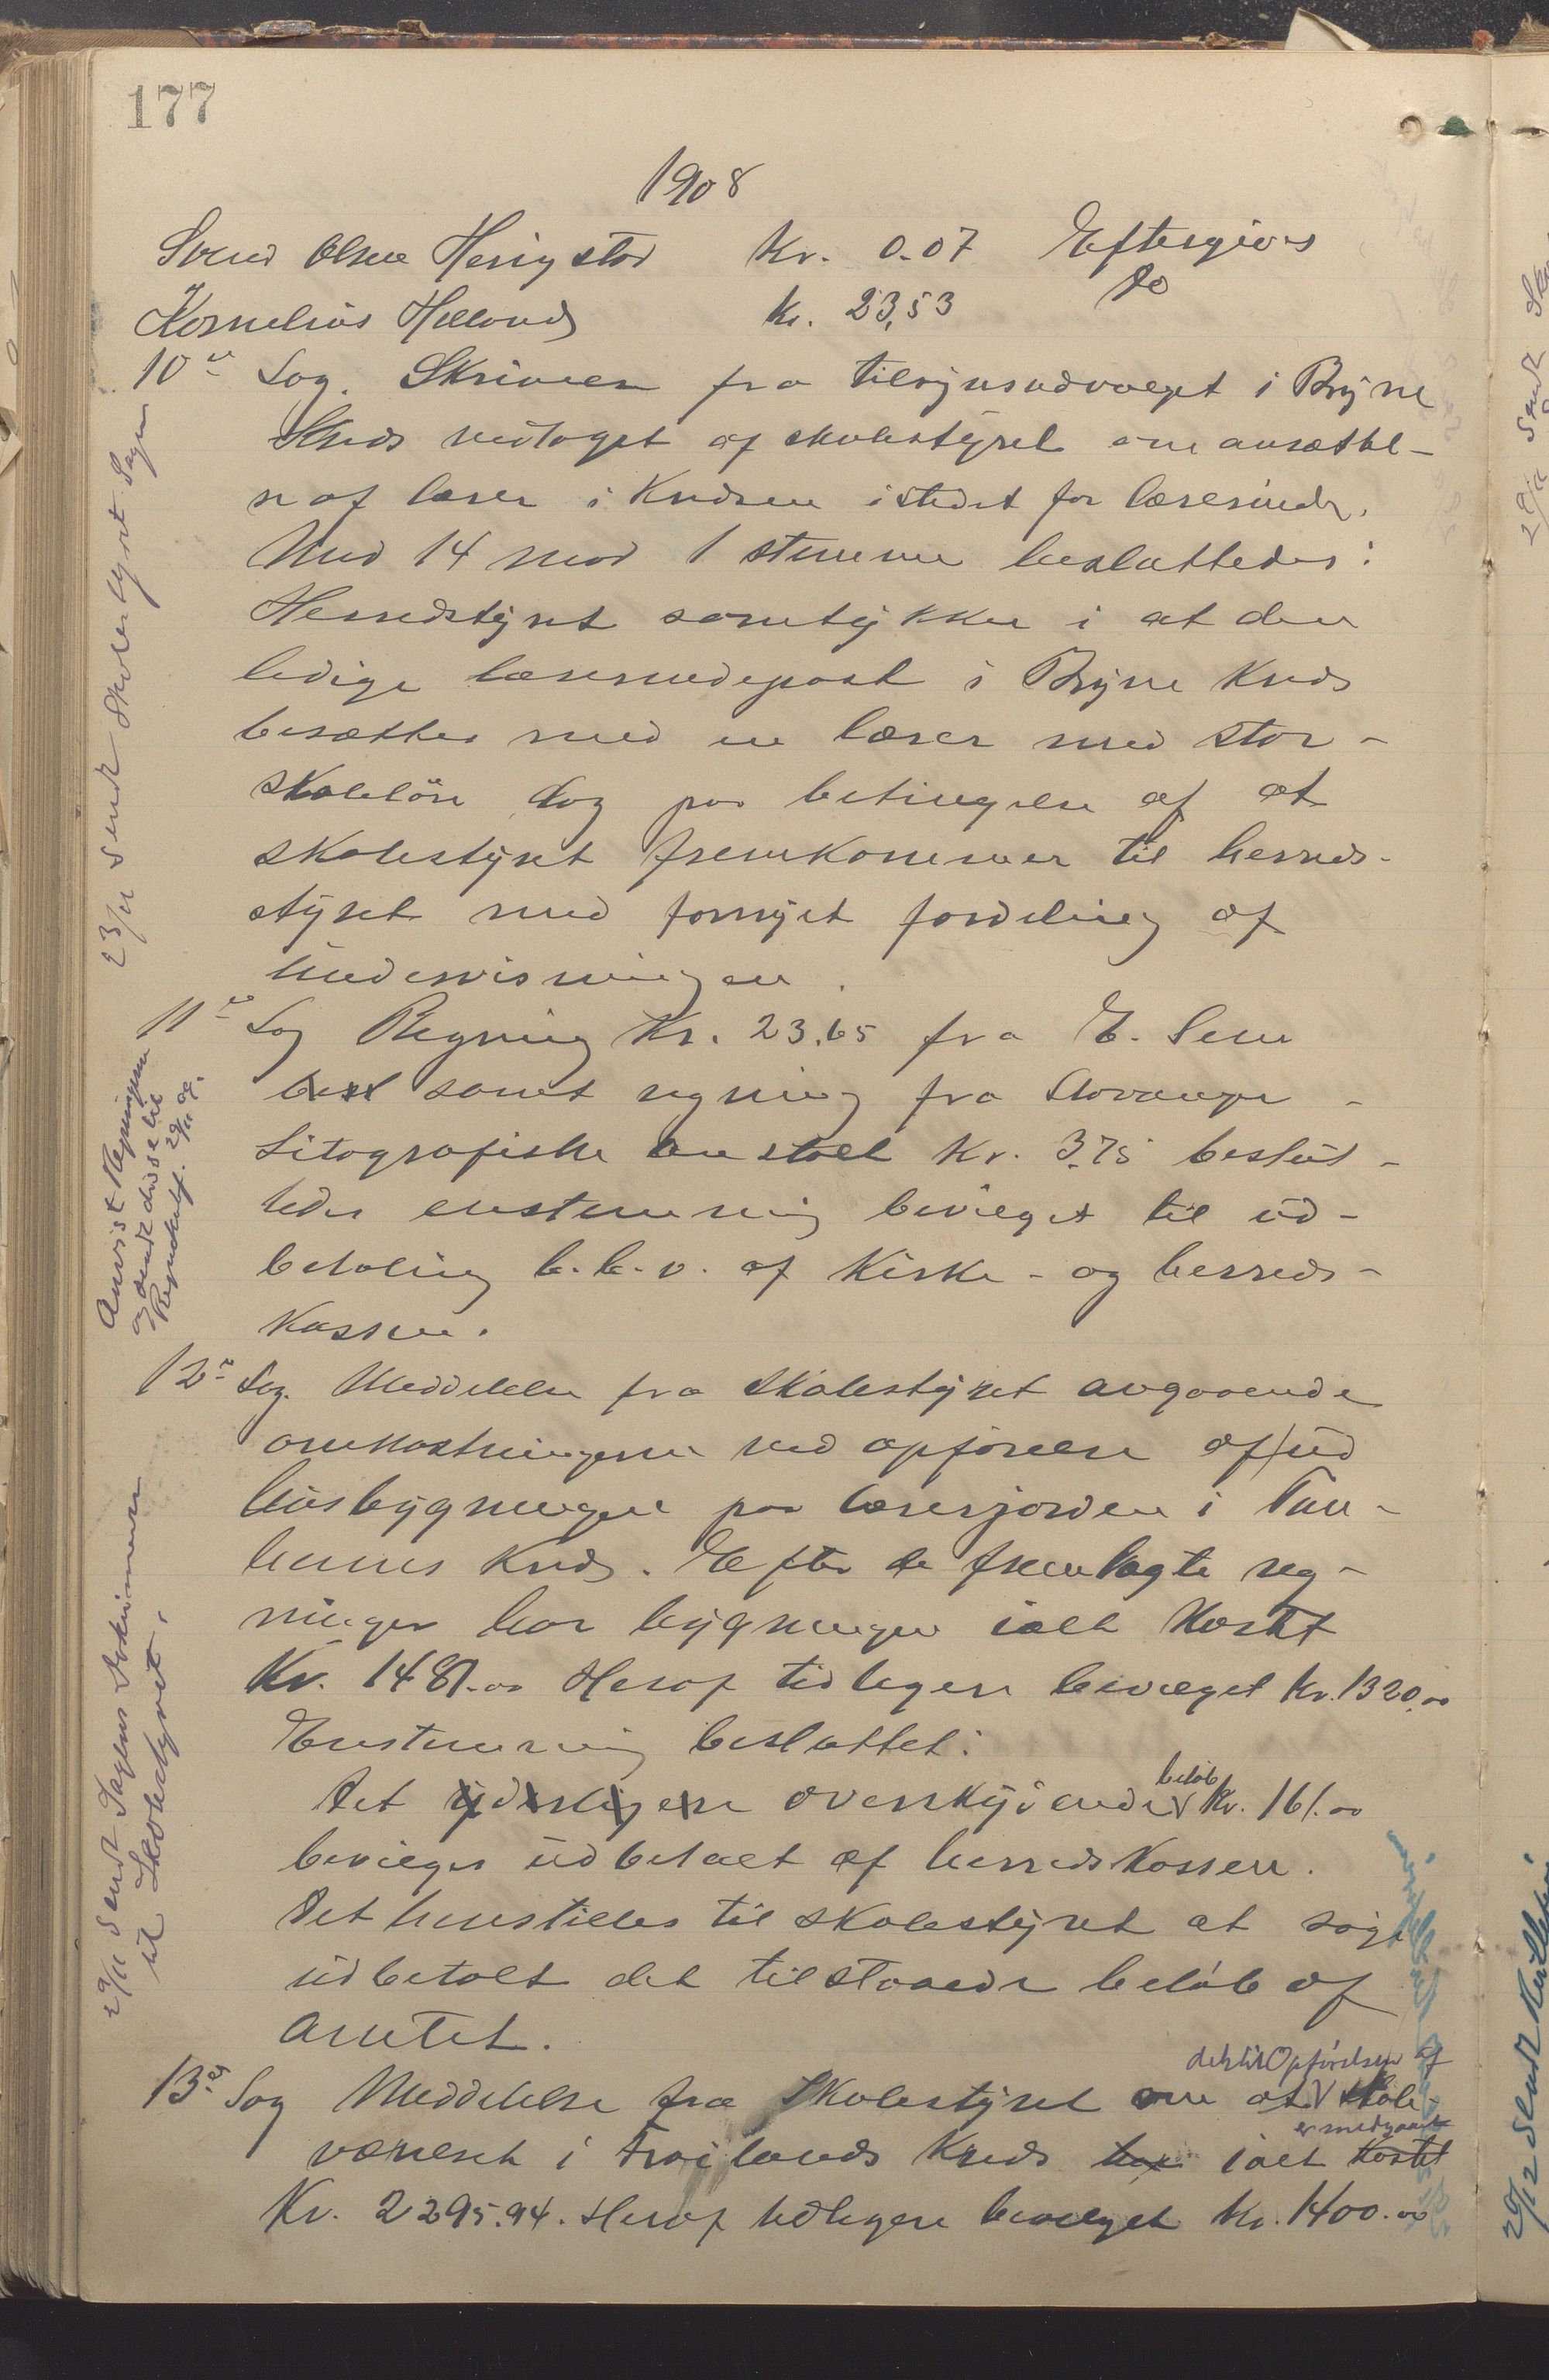 177
1908
Svend Olsen Herigstad Kr. 0.07 Eftergives
Kornelius Helland kr. 23,53 do
10de Sag. Skrivelse fra tilsynsudvalget i Bryne
Kreds vedtaget af skolestyret om ansættel-
se af lærer i Kredsen istedet for lærerinde.
Med 14 mod 1 stemme besluttedes:
Herredstyret samtykker i at den
ledige lærerindepost i Bryne Kreds
besættes med en lærer med stor-
skoleløn dog paa betingelse af at
skolestyret fremkommer til herreds-
styret med fornyet fordeling af
undervisningen.
23/11 sendt Skolestyret Sagen
11te Sag Regning Kr. 23.65 fra E. Sem
samt regning fra Stavanger
Litografiske anstalt Kr. 3.75 beslut-
tedes enstemmig bevilget til ud-
betaling h.h.v. af Kirke- og herreds-
kassen.
Anvist Regningerne
og sendt disse til
Regnskabsf. 29/11 08.
12te Sag. Meddelelse fra Skolestyret angaaende
omkostningerne ved opførelse af ud
husbygningen paa lærerjorden i Tun-
heims Kreds. Efter de fremlagte reg-
ninger har bygningen ialt kostet
Kr. 1481.00 Heraf tidligere bevilget kr. 1320.00
Enstemmig besluttet:
Det yderligere overskydende beløb Kr. 161.00
bevilges udbetalt af herredskassen.
Det henstilles til skolestyret at søge
udbetalt det tilstaaede beløb af
Amtet.
29/11 sendt Sagens Dokumenter
til Skolestyret.
13de Sag Meddelelse fra Skolestyret om at det til Opførelsen af skole
værelset i Frøilands Kreds har er medgaaet ialt kostet
Kr. 2295.94. Heraf tidligere bevilget Kr. 1400.00